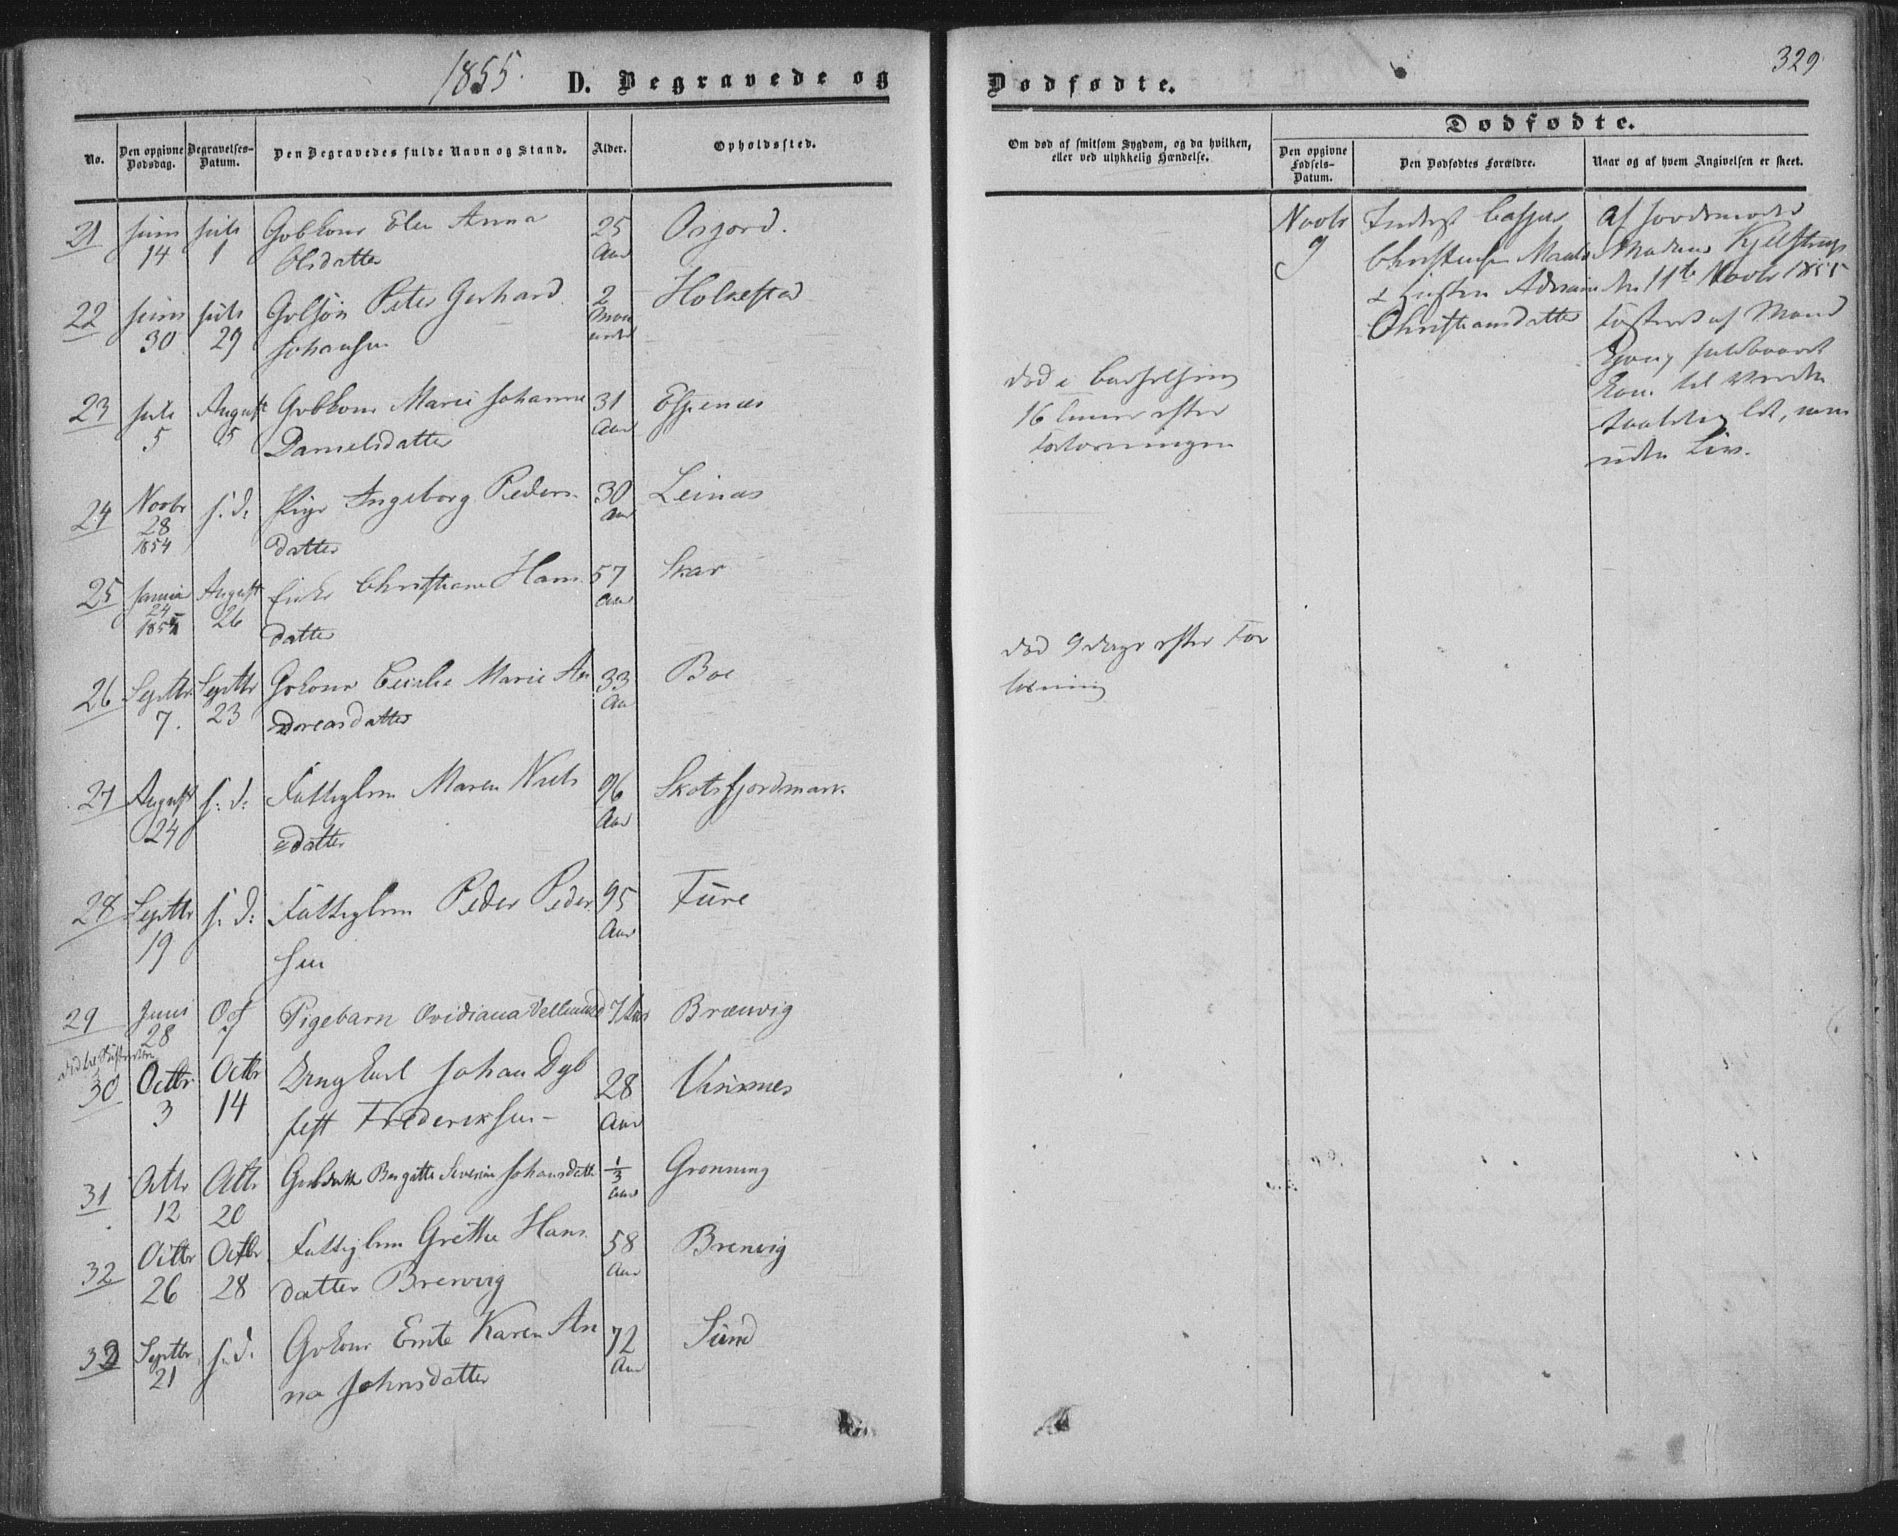 1855.
D. Begravede og
No.
Den opgivne Dødsdag.
Begravelses-Datum.
Den Begravedes fulde Navn og Stand.
Alder.
Opholdssted.
21 Juni 14 Juli 1 Gbkone Elen Anna 25 Aar Osgord.
Olsdatter
22 Juni 30 Juli 29 Peter Gerhard 2 Holkestad
Johansen
23 Juli 5 August 5 Gbkone Marie Johanna 31 Aar Espenæs
Danielsdatter
24 Novbr 28 1854 s. d. Pige Ingeborg Peders 30 Aar Leinæs
datter
25 24 August 26 Enke Christiane Hans 57 Aar Skar
datter
26 Septbr 7. Septbr 23 Gbkone Cecilie Marie An 33 Aar Boe
dreasdatter
27 August 24 s. d. Fattiglem Maren Niels 96 Aar Skotsfjordmark.
datter
28 Septbr 19 s. d. Fattiglem Peder Peder 95 Aar Fure
sen
29 Juni 28 Oct 7 Pigebarn Ovidiana 7 Aar Brænvig
30 Octbr 3 Octbr 14 Ungkarl Johan Dyb 28 Aar Vinnæs
fest Frederiksen
31 Octbr 12 Octbr 20 Bergitte Severine Johansdatt 1/3 Aar Grønning
32 Octbr 26 Octbr 28 Fattiglem Grethe Hans 58 Aar Brenvig
datter Brenvig
33 Septbr 21 s. d. Gbkone Ente Karen An 72 Aar Sund
na Johnsdatter
329
Dødfødte.
Om død af smitsom Sygdom, og da hvilken,
eller ved ulykkelig Hændelse.
Dødfødte.
Den opgivne Fødsels-Datum.
Den Dødfødtes Forældre.
Naar og af hvem Angivelsen er skeet.
Novbr 9
Inderst Casper
Christensen
Christiansdatter
Af Jordemoder
Madame Kjelstrup
den 11te Novbr 1855
Fosteret af Mand
kom til Verden
uden Liv.
død i Barselseng
16 Timer efter
Forløsningen
død 9 dage efter For
løsning